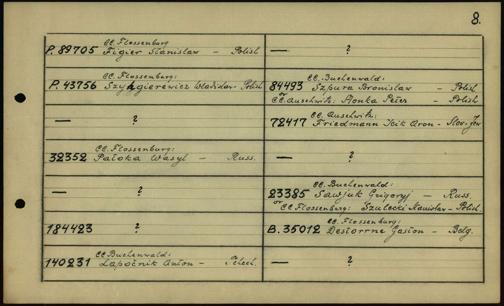 8.
CC. Flossenburg
P. 89705 Figier Stanislaw - Polish
CC. Flossenburg:
P. 43756 Szyngierewicz Wladislav - Polish
— ?
CC. Flossenburg:
32352 Patoka Wasyl - Russ.
— ?
184423 ?
CC. Buchenwald:
140231 Lapocnik Anton - Tchech.
— ?
CC. Buchenwald:
84493 Szpura Bronislaw - Polish
or CC. Auschwitz: Slonka Peter - Polish
CC. Auschwitz:
72417 Friedmann Isik Aron - Slov. Jew
— ?
CC. Buchenwald:
23385 Sawjuk Grigoryj - Russ.
or CC. Flossenberg: Szulecki Stanislav - Polish.
CC. Flossenburg:
B. 35012 Destorrne Gaston - Belg.
— ?